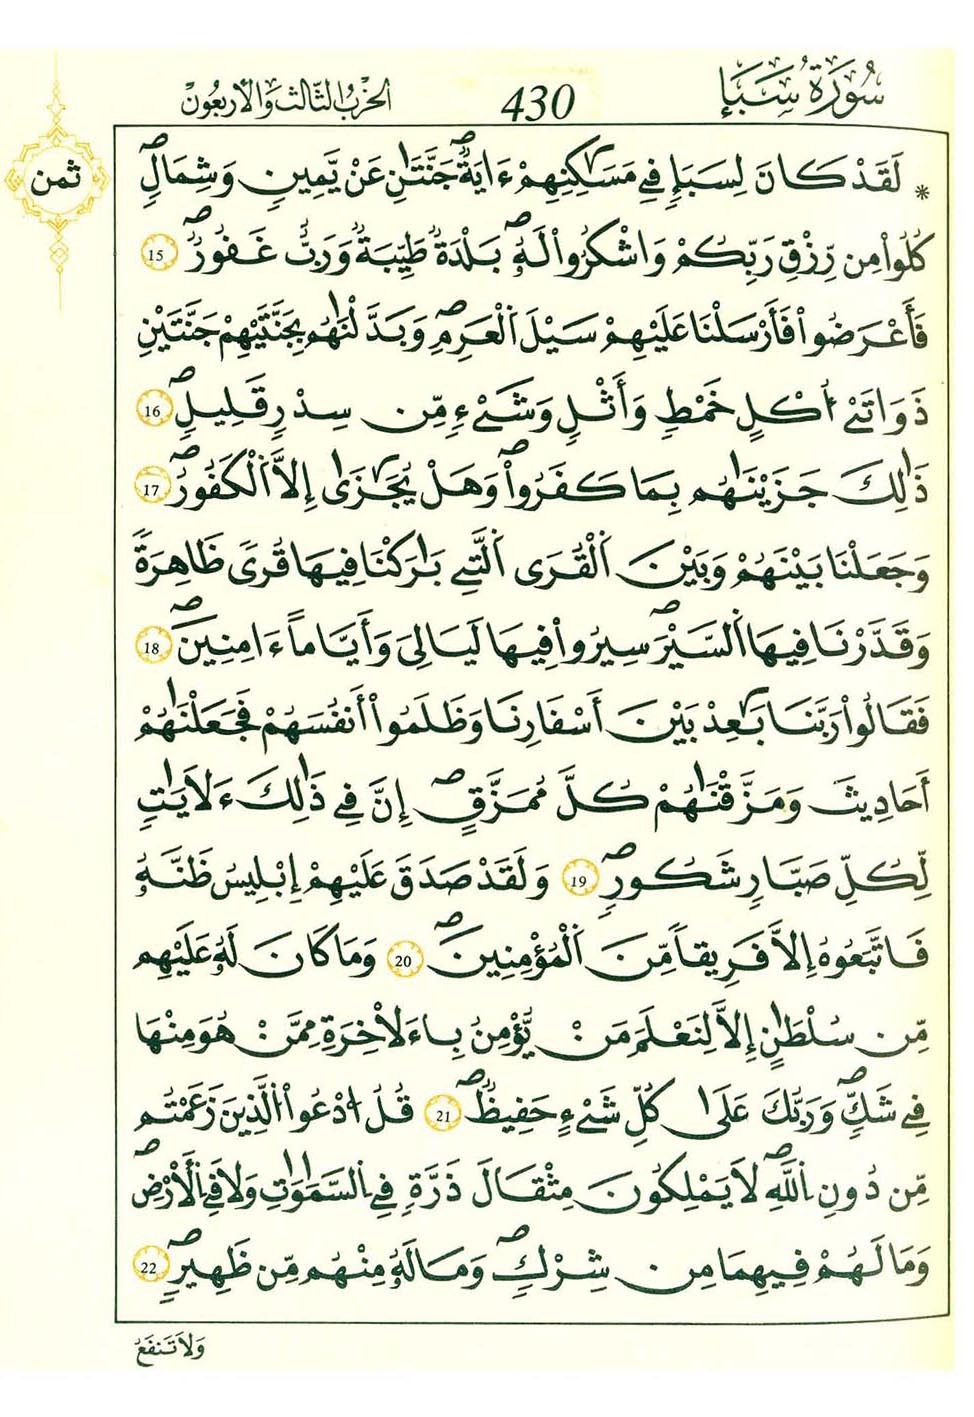 سُورَةُ سَبَإٍ
430
الحِزْبُ الثَّالِثُ وَالأَرْبَعُونْ
ثمن
* لَقَدْ كَانَ لِسَبَإٍ فِے مَسَٰكِنِهِمْ ءَايَةٌۖ جَنَّتَٰنِ عَنْ يَّمِينٍ وَشِمَالٍۖ
كُلُواْ مِن رِّزْقِ رَبِّكُمْ وَاشْكُرُواْ لَهُۥۖ بَلْدَةٌ طَيِّبَةٌ وَرَبٌّ غَفُورٌۖ 15
فَأَعْرَضُواْ فَأَرْسَلْنَا عَلَيْهِمْ سَيْلَ اَلْعَرِمِۖ وَبَدَّلْنَٰهُم بِجَنَّتَيْهِمْ جَنَّتَيْنِ
ذَوَاتَيْ أُكْلٍ خَمْطٍ وَأَثْلٍ وَشَےْءٍ مِّن سِدْرٍ قَلِيلٍۖ 16
ذَٰلِكَ جَزَيْنَٰهُم بِمَا كَفَرُواْۖ وَهَلْ يُجَٰزَىٰ إِلاَّ اَلْكَفُورُۖ 17
وَجَعَلْنَا بَيْنَهُمْ وَبَيْنَ اَلْقُرَى اَلتِے بَٰرَكْنَا فِيهَا قُرىً ظَٰهِرَةً
وَقَدَّرْنَا فِيهَا اَلسَّيْرَۖ سِيرُواْ فِيهَا لَيَالِىَ وَأَيَّاماً ءَامِنِينَۖ 18
فَقَالُواْ رَبَّنَا بَٰعِدْ بَيْنَ أَسْفَارِنَا وَظَلَمُواْ أَنفُسَهُمْ فَجَعَلْنَٰهُمْ
أَحَادِيثَ وَمَزَّقْنَٰهُمْ كُلَّ مُمَزَّقٍۖ إِنَّ فِے ذَٰلِكَ ءَلاَيَٰتٍ
لِّكُلِّ صَبَّارٍ شَكُورٍۖ 19 وَلَقَدْ صَدَقَ عَلَيْهِمْ إِبْلِيسُ ظَنَّهُۥ
فَاتَّبَعُوهُ إِلاَّ فَرِيقاً مِّنَ اَلْمُؤْمِنِينَۖ 20 وَمَا كَانَ لَهُۥ عَلَيْهِم
مِّن سُلْطَٰنٍ اِلاَّ لِنَعْلَمَ مَنْ يُّؤْمِنُ بِاءَلاْخِرَةِ مِمَّنْ هُوَ مِنْهَا
فِے شَكٍّۖ وَرَبُّكَ عَلَىٰ كُلِّ شَےْءٍ حَفِيظٌۖ 21 قُلُ اُدْعُواْ اُلذِينَ زَعَمْتُم
مِّن دُونِ اِللَّهِۖ لاَ يَمْلِكُونَ مِثْقَالَ ذَرَّةٍ فِے اِلسَّمَٰوَٰتِ وَلاَ فِے اِلْأَرْضِۖ
وَمَا لَهُمْ فِيهِمَا مِن شِرْكٍۖ وَمَا لَهُۥ مِنْهُم مِّن ظَهِيرٍۖ 22
وَلاَ تَنفَعُ